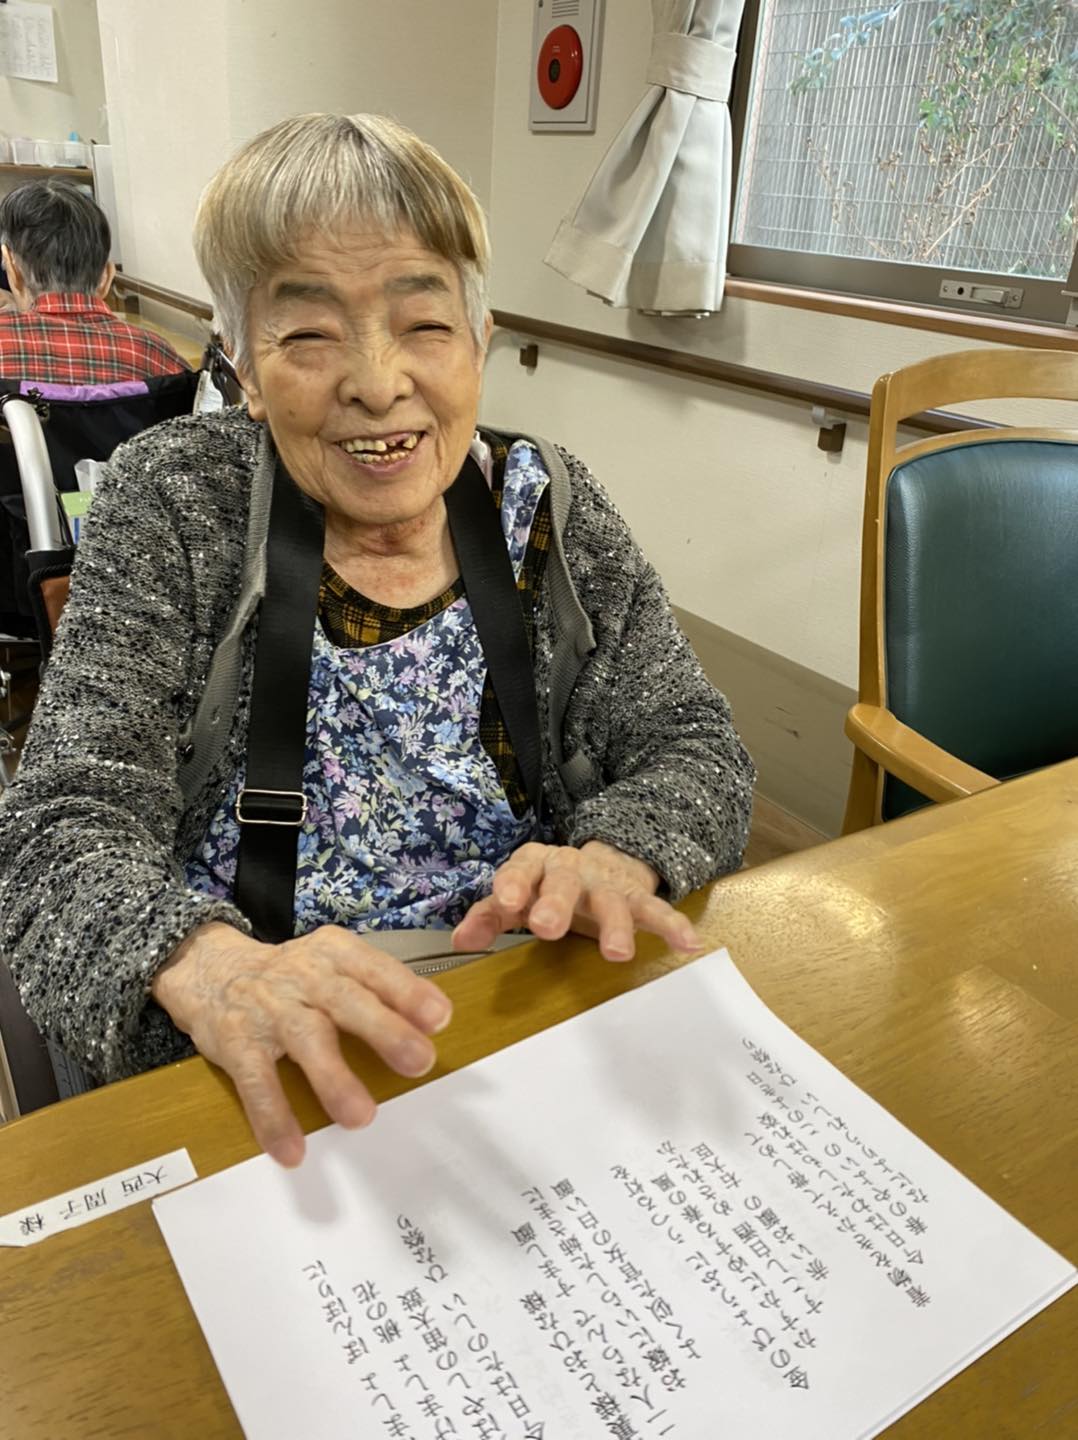 大西 周子 様
ましょ ぼんぼりに
げましょ 桃の花
ばやしの笛太鼓
今日はたのしい ひな祭り
裏様と おひな様
二人ならんで すまし顔
お嫁にいらした姉さまに
よく似た官女の白い顔
金のびょうぶに うつる灯を
かすかにゆする 春の風
すこし白酒 めされたか
赤いお顔の 右大臣
着物をきかえて 帯しめて
今日はわたしも はれ姿
春のやよいの このよき日
なによりうれしい ひな祭り